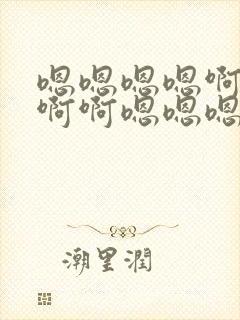 嗯嗯嗯嗯啊
啊啊嗯嗯嗯
潮里润